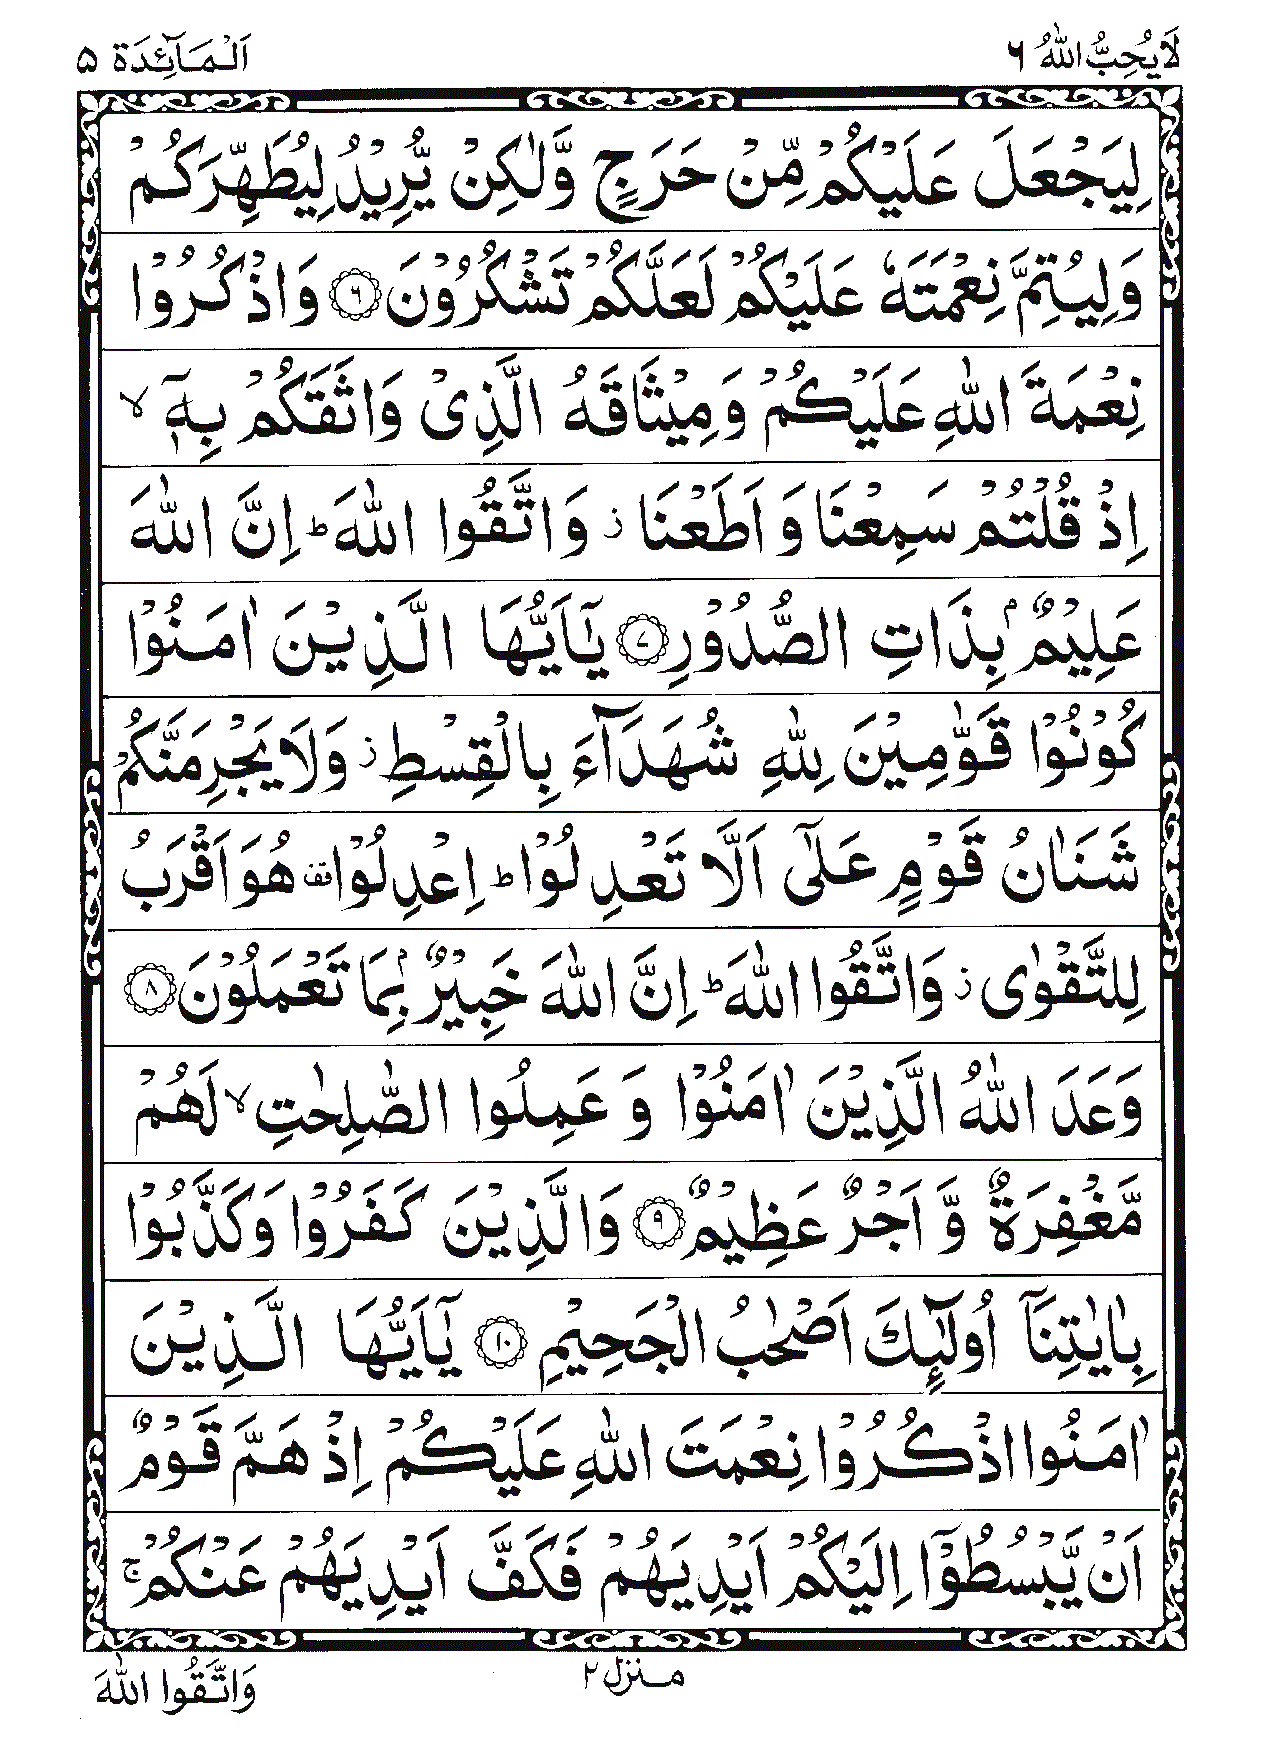 لَا يُحِبُّ اللّٰهُ ٦
اَلْمَآئِدَة ٥
لِيَجْعَلَ عَلَيْكُمْ مِّنْ حَرَجٍ وَّلٰكِنْ يُّرِيْدُ لِيُطَهِّرَكُمْ
وَلِيُتِمَّ نِعْمَتَهٗ عَلَيْكُمْ لَعَلَّكُمْ تَشْكُرُوْنَ ۝٦ وَاذْكُرُوْا
نِعْمَةَ اللّٰهِ عَلَيْكُمْ وَمِيْثَاقَهُ الَّذِىْ وَاثَقَكُمْ بِهٖٓ ۙ
اِذْ قُلْتُمْ سَمِعْنَا وَ اَطَعْنَا ز وَاتَّقُوا اللّٰهَ ؕ اِنَّ اللّٰهَ
عَلِيْمٌۢ بِذَاتِ الصُّدُوْرِ ۝٧ يٰٓاَيُّهَا الَّذِيْنَ اٰمَنُوْا
كُوْنُوْا قَوّٰمِيْنَ لِلّٰهِ شُهَدَآءَ بِالْقِسْطِ ز وَلَا يَجْرِمَنَّكُمْ
شَنَاٰنُ قَوْمٍ عَلٰٓى اَلَّا تَعْدِلُوْا ؕ اِعْدِلُوْا قف هُوَ اَقْرَبُ
لِلتَّقْوٰى ز وَاتَّقُوا اللّٰهَ ؕ اِنَّ اللّٰهَ خَبِيْرٌۢ بِمَا تَعْمَلُوْنَ ۝٨
وَعَدَ اللّٰهُ الَّذِيْنَ اٰمَنُوْا وَ عَمِلُوا الصّٰلِحٰتِ ۙ لَهُمْ
مَّغْفِرَةٌ وَّ اَجْرٌ عَظِيْمٌ ۝٩ وَالَّذِيْنَ كَفَرُوْا وَكَذَّبُوْا
بِاٰيٰتِنَآ اُولٰٓئِكَ اَصْحٰبُ الْجَحِيْمِ ۝١٠ يٰٓاَيُّهَا الَّذِيْنَ
اٰمَنُوا اذْكُرُوْا نِعْمَتَ اللّٰهِ عَلَيْكُمْ اِذْ هَمَّ قَوْمٌ
اَنْ يَّبْسُطُوْٓا اِلَيْكُمْ اَيْدِيَهُمْ فَكَفَّ اَيْدِيَهُمْ عَنْكُمْ ۚ
منزل ٢
وَاتَّقُوا اللّٰهَ